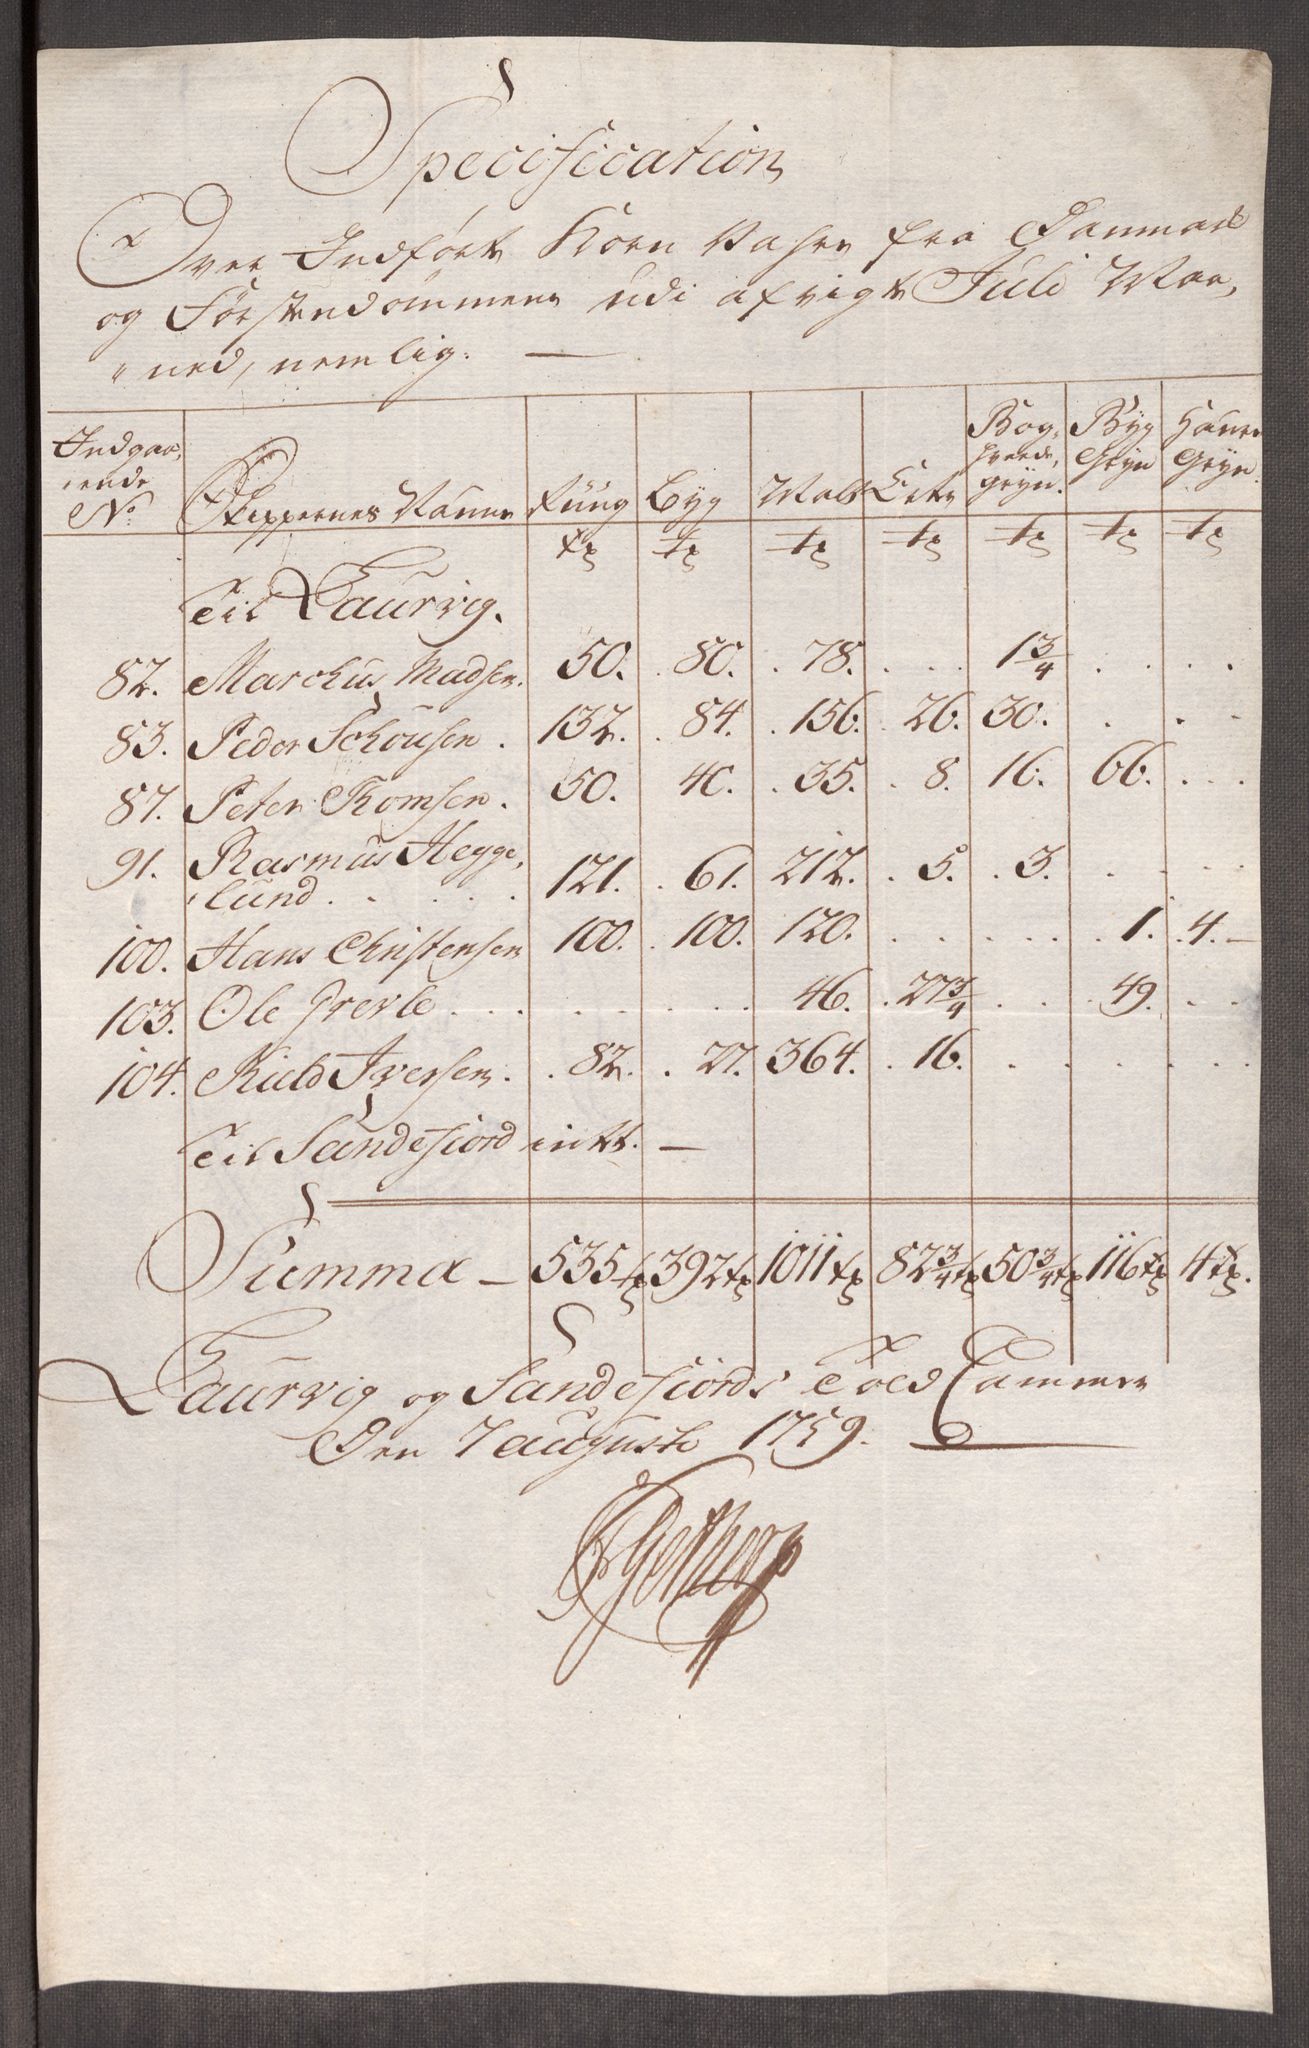 Specification
Over Indført Korn Vahre fra Danmark
og Förstendommene udi afvigte Julii Maa,
"ned, nemlig. —
Indgaa,
,ende
No. Skippernes Nafne Rüug Byg Malt Erter Bog,hvede,gryn. Byg Gryn Hauer Gryn.
tr tr tr tr tr tr tr
Til Laurvig.
82. Marchus Madsen. 50. 80. 78. . . 1 3/4 . . . .
83. Peder Schousen. 132. 84. 156. 26. 30. . . .
87. Peter Thomsen. 50. 40. 35. 8. 16. 66. . .
91. Rasmus Hegge,
,lund . . . . . 121. 61. 212. 5. 3. . . . .
100. Hans Christensen 100. 100. 120. . . . . . 1. 4. —
103. Ole . . . . . . . 46. 27 3/4 . . 49. . .
104. Kield Iversen. 82. 27. 364. 16. . . . . . .
Til Sandefiord intet. —
Summa — 535 tr 392 tr 1011 tr 82 3/4 tr 50 3/4 tr 116 tr 4 tr.
Laurvig og Sandefiords Told Cammer
Den 7 augusti 1759.